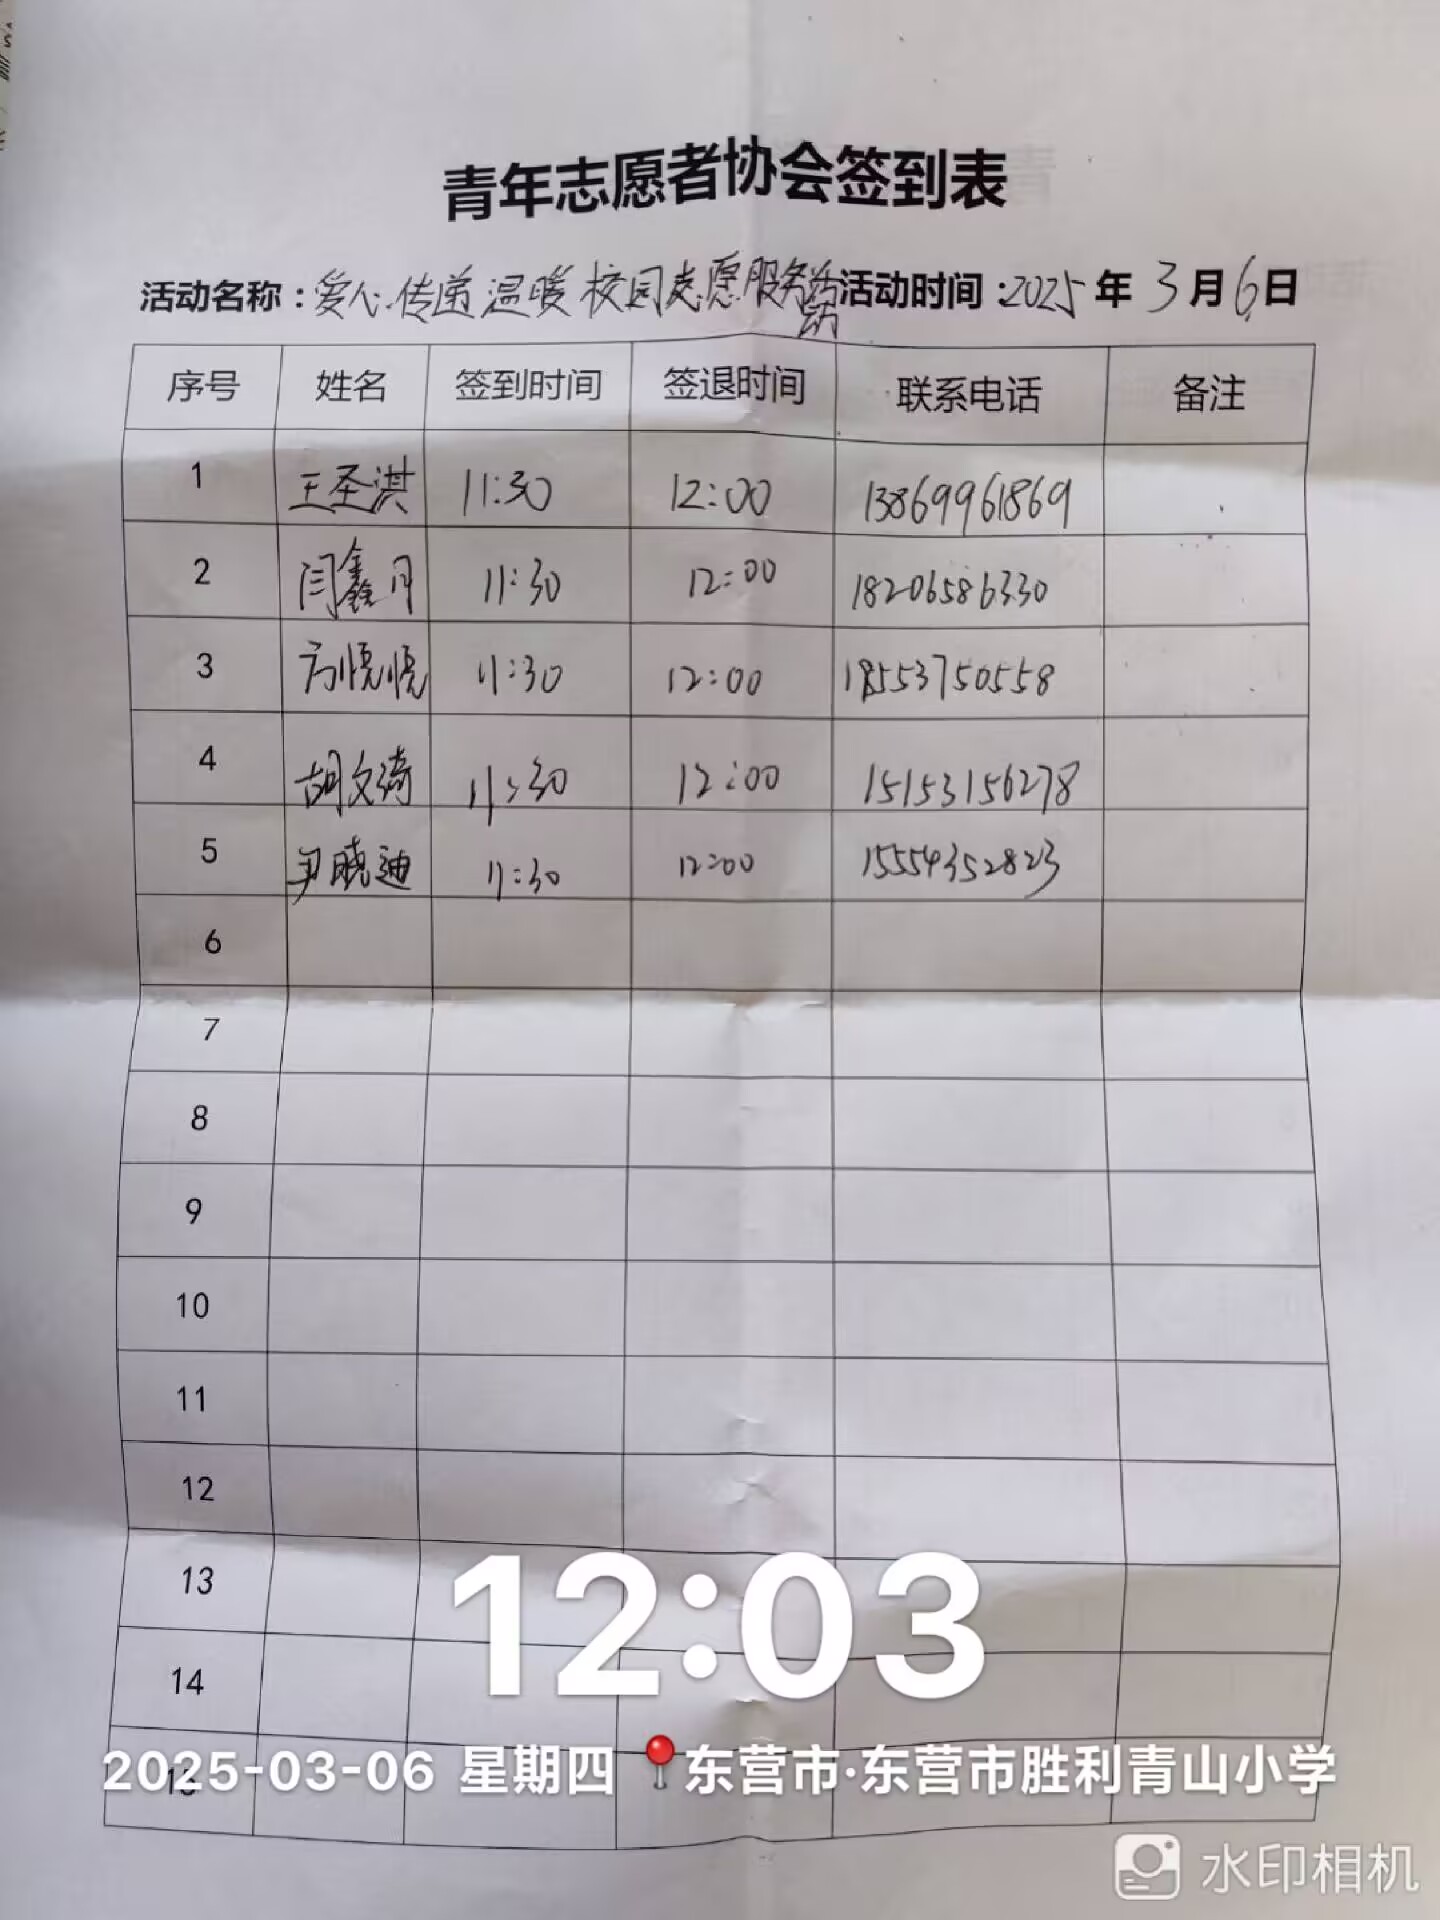 青年志愿者协会签到表
活动名称：爱心传递 温暖校园志愿服务活动 活动时间：2025年3月6日
序号 姓名 签到时间 签退时间 联系电话 备注
1 王圣淇 11:30 12:00 13869961869
2 闫鑫月 11:30 12:00 18206586330
3 方悦悦 11:30 12:00 18553750558
4 胡文琦 11:30 12:00 15153156278
5 尹晓迪 11:30 12:00 15554352823
6
7
8
9
10
11
12
13
12:03
14
15
2025-03-06 星期四 东营市·东营市胜利青山小学
水印相机